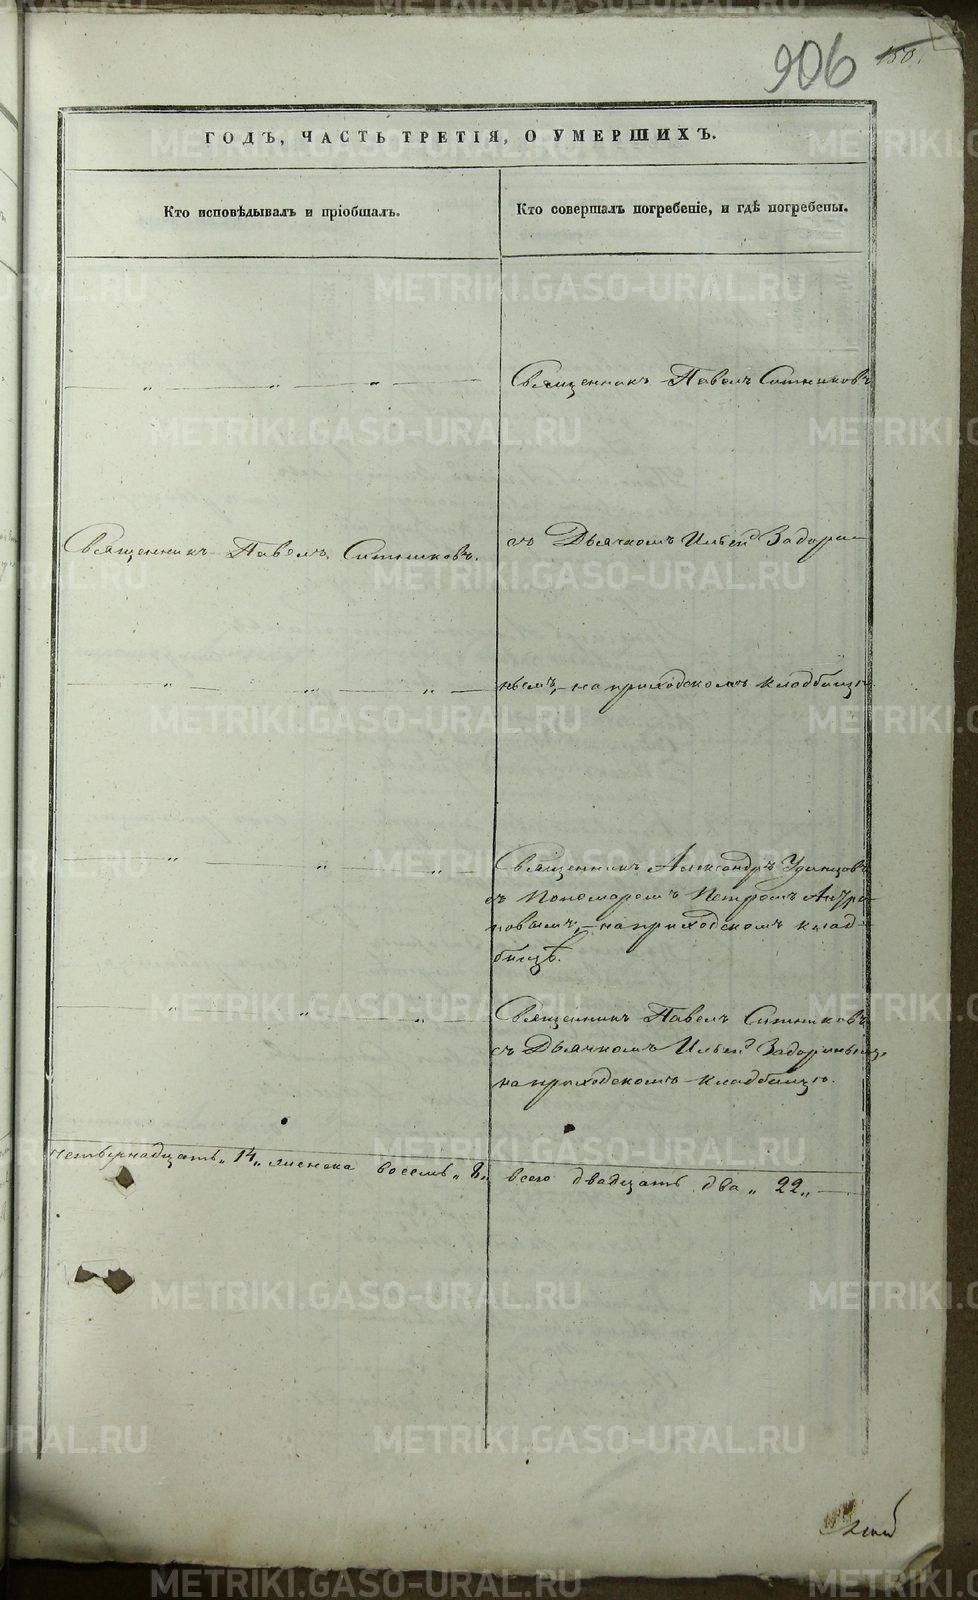 906 150.
ГОДЪ, ЧАСТЬ ТРЕТІЯ, О УМЕРШИХЪ.
Кто исповѣдывалъ и пріобщалъ.
Кто совершалъ погребеніе, и гдѣ погребены.
Священникъ Павелъ Ситниковъ
Священникъ Павелъ Ситниковъ.
съ Дьячкомъ Ильей Задори-
нымъ, на приходскомъ кладбищѣ.
Священникъ Александръ Удинцовъ
съ Пономаремъ Петромъ
новымъ, на приходскомъ клад-
бищѣ.
Священникъ Павелъ Ситниковъ
съ Дьячкомъ Ильей Задоринымъ,
на приходскомъ кладбищѣ.
четырнадцать „14„ женска восемь „8„ всего двадцать два „22„
METRIKI.GASO-URAL.RU